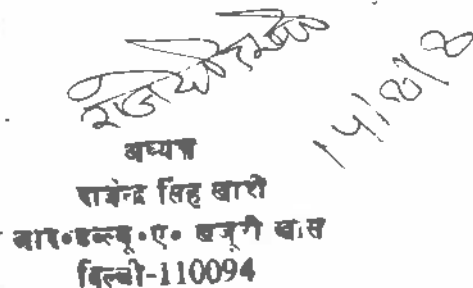 14/8/8
अध्यक्ष
राजेन्द्र सिंह खारी
आर॰डब्ल्यू॰ए॰ खजूरी खास
दिल्ली-110094